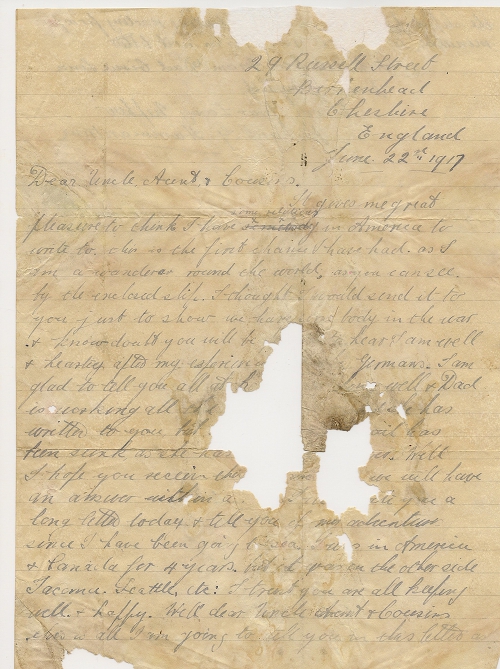 29 Russell Street
Birkenhead
Cheshire
England
June 22nd 1917
Dear Uncle, Aunt, & Cousins.
It gives me great
pleasure to think I have some relations somebody in America to
write to. this is the first chance I have had. as I
am a wanderer round the world, as you can see.
by the enclosed slip. I thought I would send it to
you just to show we have body in the war
& I know doubt you will be hear I am well
& hearty after my Germans. I am
glad to tell you all at h well & Dad
is working all has
written to you but mail has
been sunk as she has Well
I hope you receive this we will have
an answer within a you a
long letter today & tell you of my adventures
since I have been going to sea. I was in America
& Canada for 4 years. but it was on the other side
Tacoma. Seattle, etc: I trust you are all keeping
well. & happy. Well, dear Uncle Aunt & Cousins
all I am going to tell you in this letter